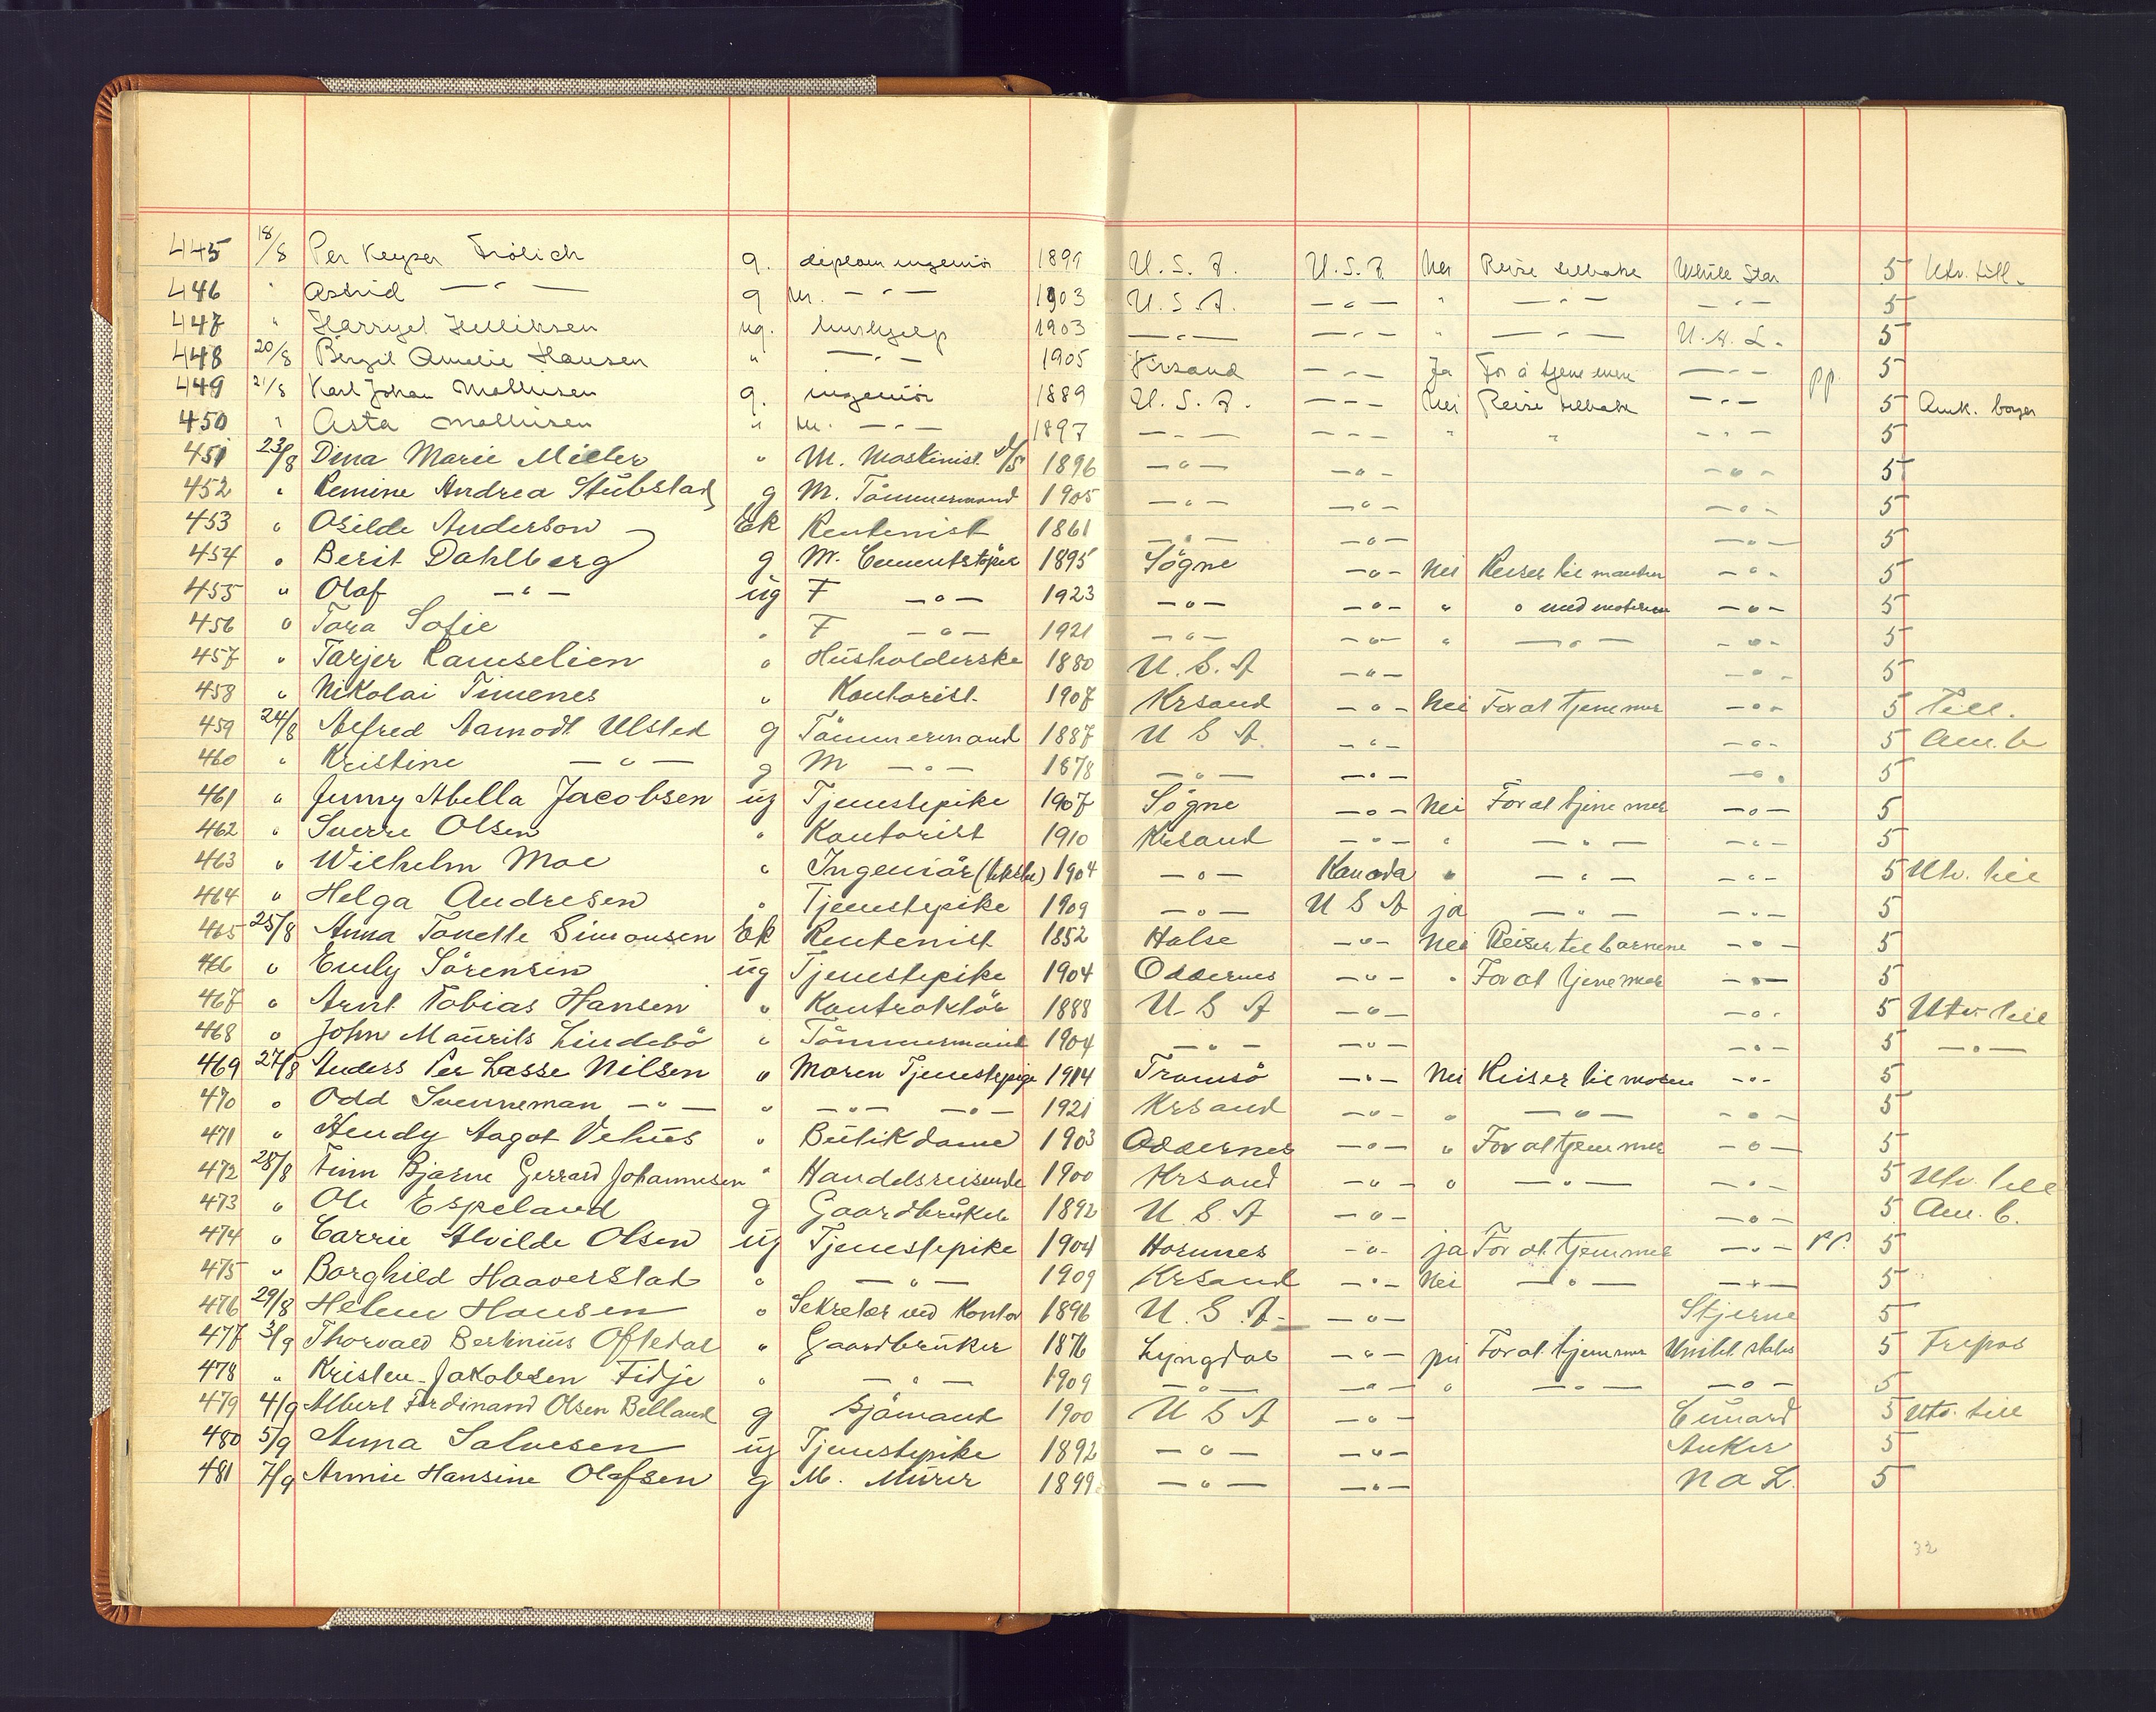 445 18/8 Per Keyser Frölich g. diplom ingeniör 1899 U.S.A. U.S.A. Nei Reise tilbake White Star 5 Utv. till.
446 " Astrid —"— g M. —"— 1903 U.S.A. —"— " —"— —"— 5
447 " ug. hushjelp 1903 —"— —"— " —"— U.S.L. 5
448 20/8 Bergit Amelie Hansen " —"— 1905 Krsand —"— Ja For å tjene mere —"— pp. 5
449 21/8 Karl Johan Mathisen g. ingeniör 1889 U.S.A. —"— Nei Reise tilbake —"— 5 Amk. borger
450 " Asta Mathisen " M. —"— 1897 —"— —"— " " —"— 5
451 23/8 Dina Marie Miller " M. Maskinist d/s 1896 —"— —"— —"— 5
452 " Remine Andrea Stubstad g M. Tömmermand 1905 —"— —"— —"— 5
453 " Osilde Anderson Ek Rentenist 1861 —"— —"— —"— 5
454 " Berit Dahlberg g M. Cementstöper 1895 Sögne —"— Nei Reiser til manden —"— 5
455 " Olaf —"— ug F —"— 1923 —"— —"— " " med moderen —"— 5
456 " Tora Sofie " F —"— 1921 —"— —"— " —"— —"— 5
457 " Tarjer Ramselien " Husholderske 1880 U.S.A —"— —"— 5
458 " Nikolai Timenes " Kontorist 1907 Krsand —"— Nei For at tjene mer —"— 5 Till.
459 24/8 Alfred Aamodt Ulsted g Tömmermand 1887 U S A —"— —"— 5 Am. b
460 " Kristine —"— g M —"— 1878 —"— —"— —"— 5
461 " Jenny Abella Jacobsen ug Tjenestepike 1907 Sögne —"— Nei For at tjene mer —"— 5
462 " Sverre Olsen " Kontorist 1910 Krsand —"— " —"— —"— 5
463 " Wilhelm Moe " Ingeniör 1904 —"— Kanada " —"— —"— 5 Utv. till
464 " Helga Andresen " Tjenestepike 1909 —"— U S A ja —"— —"— 5
465 25/8 Anna Tonette Simonsen Ek Rentenist 1852 Halse —"— Nei Reiser til barnene —"— 5
466 " Emly Sörensen ug Tjenestepike 1904 Oddernes —"— " For at tjene mer —"— 5
467 " Arnt Tobias Hansen " Kontraktör 1888 U S A —"— —"— 5 Utv till
468 " John Maurits Lindebö " Tömmermand 1904 —"— —"— —"— 5 —"—
469 27/8 Anders Per Lasse Nilsen " Moren Tjenestepige 1914 Tromsö —"— Nei Reiser til moren —"— 5
470 " Odd Svenneman —"— " —"— —"— 1921 Krsand —"— " —"— —"— 5
471 " Hendy Aagot Vehus " Butikdame 1903 Oddernes —"— " For at tjene mer —"— 5
472 28/8 Finn Bjarne Gerrard Johannesen " Handelsreisende 1900 Krsand —"— " —"— —"— 5 Utv. till
473 " Ole Espeland g Gaardbruker 1892 U.S.A —"— —"— 5 Am. b.
474 " Carrie Alvilde Olsen ug Tjenestepike 1904 Hornnes —"— ja For at tjene mer —"— pp. 5
475 " Borghild Haaverstad " —"— 1909 Krsand —"— Nei —"— —"— 5
476 29/8 Helene Hansen " Sekretær ved Kontor 1896 U.S.A. —"— Stjerne 5
477 3/9 Thorvald Bertinius Oftedal " Gaardbruker 1876 Lyngdal —"— nei For at tjene mer United states 5 Fripas
478 " Kristen Jakobsen Fidje " —"— 1909 —"— —"— " —"— —"— 5
479 4/9 Albert Ferdinand Olsen Belland g Sjömand 1900 U S A —"— Cunard 5 Utv. till
480 5/9 Anna Salvesen ug Tjenestepike 1892 —"— —"— Anker 5
481 7/9 Annie Hansine Olafsen g M. Murer 1899 —"— —"— N A L. 5
32